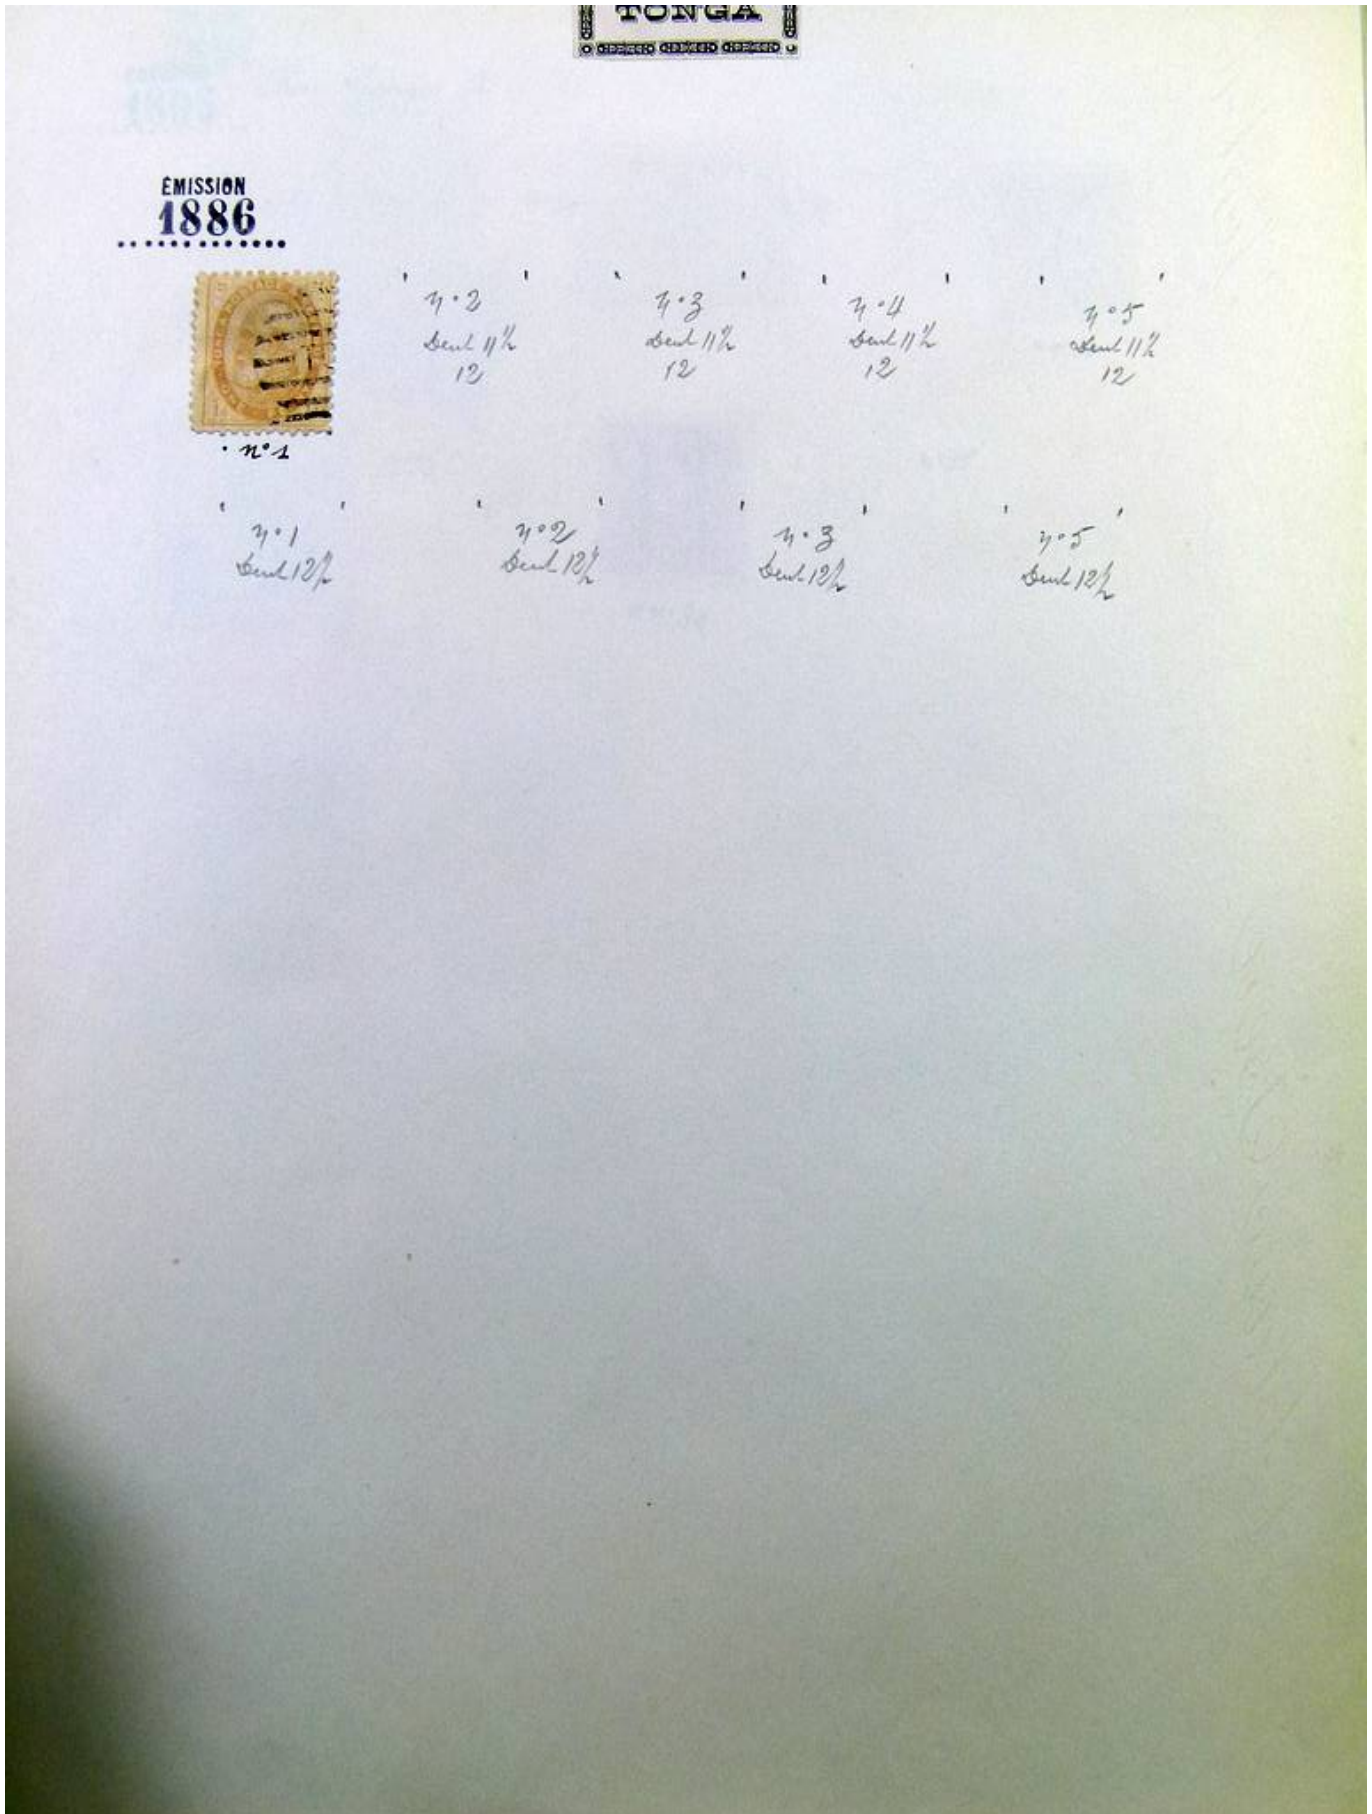 TONGA
ÉMISSION
1886
n° 2
Dent 11½
12
n° 3
Dent 11½
12
n° 4
Dent 11½
12
n° 5
Dent 11½
12
POSTAGE
n° 1
n° 1
Dent 12½
n° 2
Dent 12½
n° 3
Dent 12½
n° 5
Dent 12½